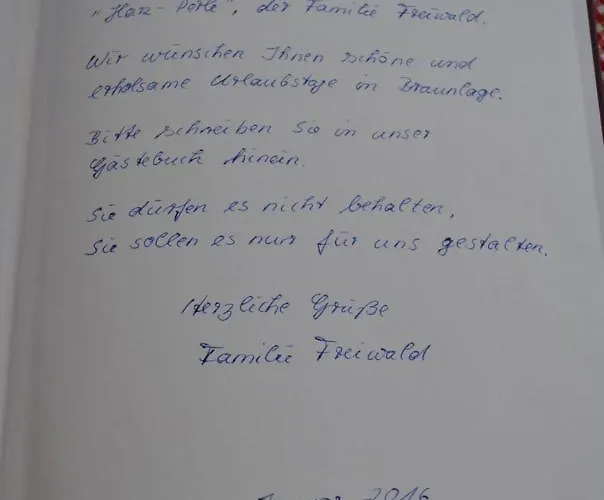 "Harz-Perle", der Familie Freiwald.
Wir wünschen Ihnen schöne und
erholsame Urlaubstage in Braunlage.
Bitte schreiben Sie in unser
Gästebuch hinein.
Sie dürfen es nicht behalten,
Sie sollen es nur für uns gestalten.
Herzliche Grüße
Familie Freiwald
2016